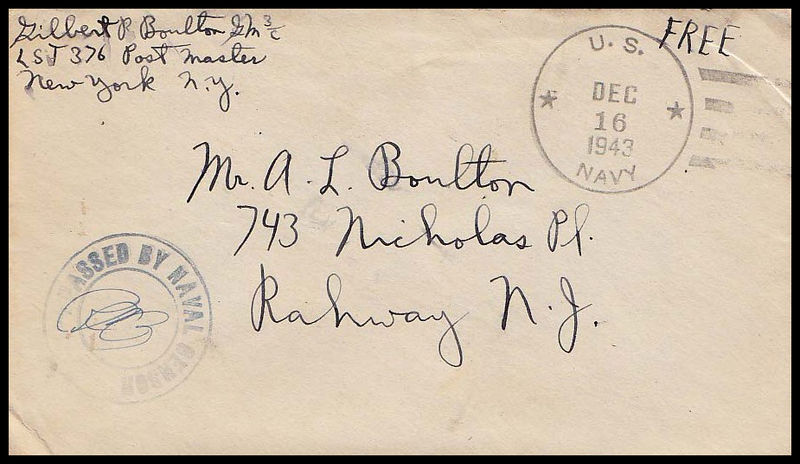 Gilbert P. Boulton GM 3/c
LST 376 Post Master
New York N.Y.
FREE
U. S.
DEC
16
1943
NAVY
Mr. A. L. Boulton
743 Nicholas Pl.
Rahway N. J.
PASSED BY NAVAL CENSOR